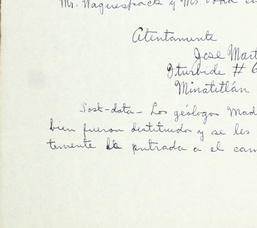 Mr. Waguespack y Mr.
Atentamente
Jose Mart
Iturbide # 6
Minatitlán
Post-data - Los geólogos Mad
bien fueron destituidos y se les
temente la entrada a el cam